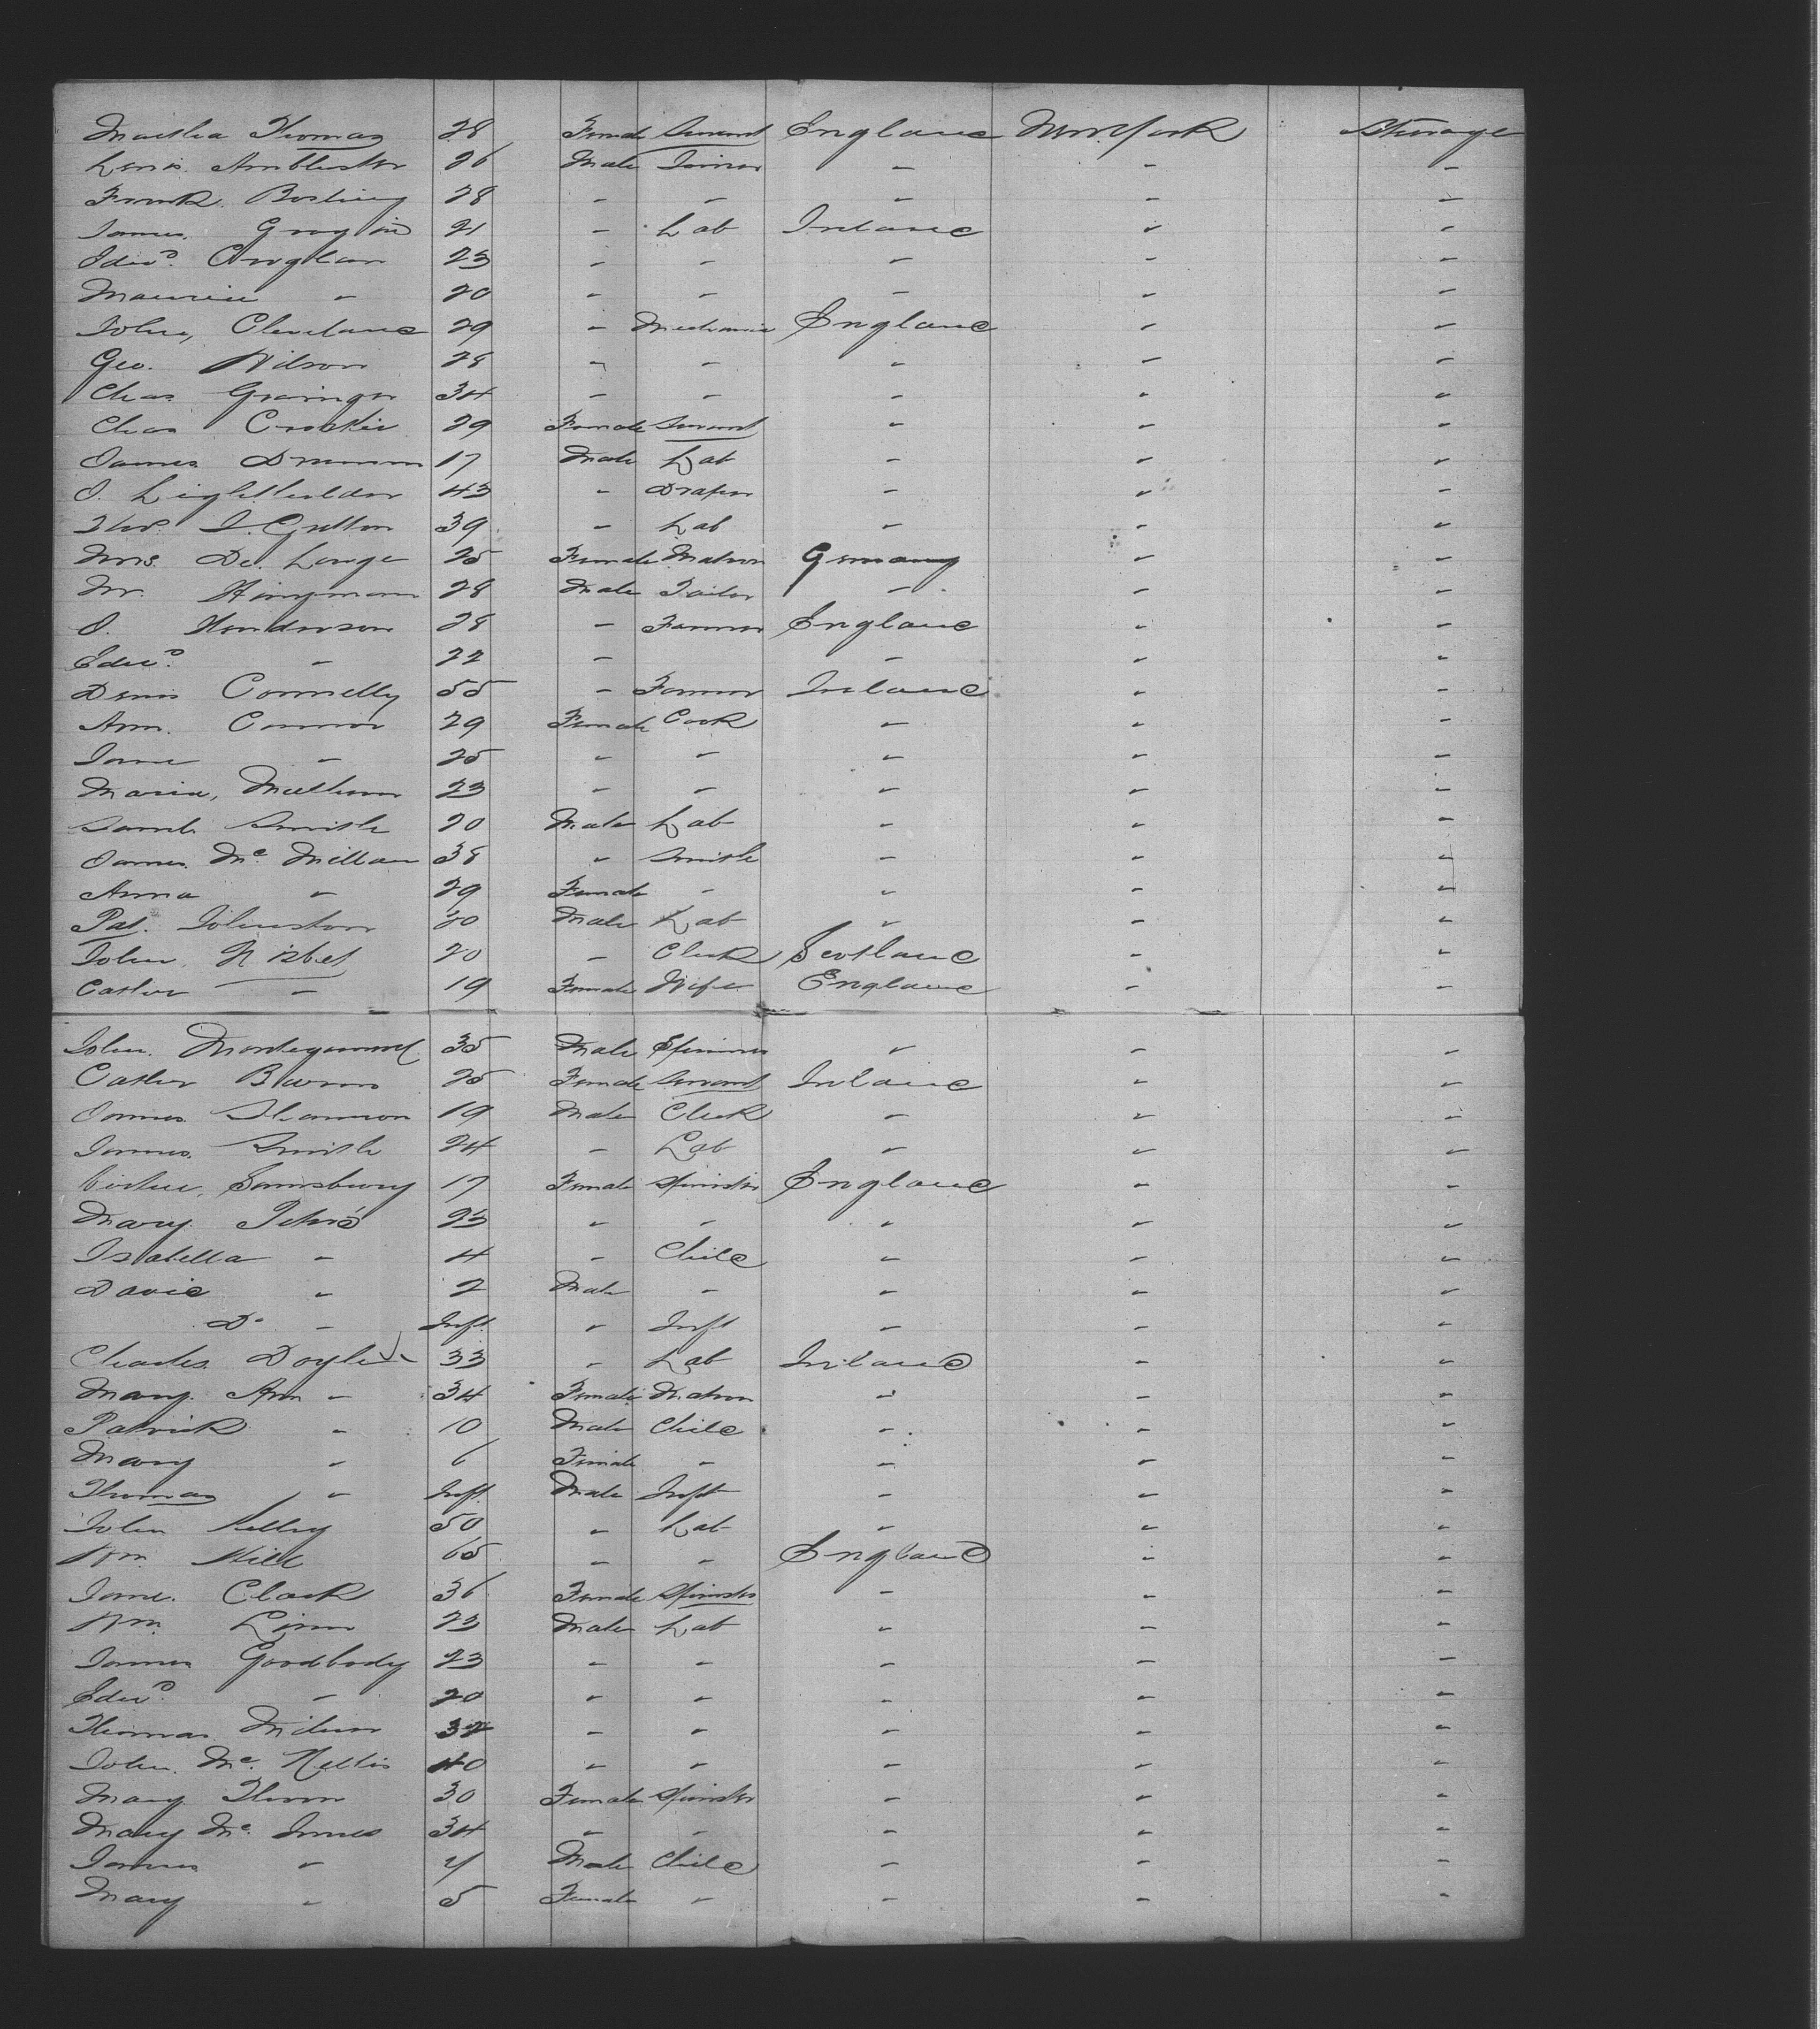 Martha Thomas 28 Female Servant England New York Steerage
Lewis Armbluster 26 Male Joiner " " "
Frank Bosling 28 " " " " "
James 21 " Lab Ireland " "
Edwd. Coughlan 23 " " " " "
Maurice " 20 " " " " "
John, Cleveland 29 " Mechanic England " "
Geo. Wilson 28 " " " " "
Chas Grainger 34 " " " " "
Chas Crockie 29 Female Servant " " "
James 17 Male Lab " " "
J. Lightholder 43 " Draper " " "
39 " Lab " " "
Mrs. De. Lange 25 Female Matron Germany " "
28 Male Tailor " " "
J. Henderson 28 " Farmer England " "
Edwd. " 22 " " " "
Denis Connelly 55 " Farmer Ireland " "
Ann. Connor 29 Female Cook " " "
Jane " 25 " " " " "
Maria, 23 " " " " "
Saml. Smith 20 Male Lab " " "
James. Mc. Millan 38 " Smith " " "
Anna " 29 Female " " " "
Pat. Johnston 20 Male Lab " " "
John. Nisbet 20 " Clerk Scotland " "
Cather " 19 Female Wife England " "
John. 35 Male Spinner " " "
Cather Burns 25 Female Servant Ireland " "
James Shannon 19 Male Clerk " " "
James. Smith 24 " Lab " " "
Sainsbury 17 Female Spinster England " "
Mary. 23 " " " " "
Isabella " 4 " Child " " "
David " 2 Male " " " "
Do " Inft. " Inft " " "
Charles. Doyle 33 " Lab Ireland " "
Mary. Ann " 34 Female Matron " " "
Patrick " 10 Male Child " " "
Mary " 6 Female " " " "
Thomas " Inft. Male Inft " " "
John Kelly 50 " Lab " " "
Wm. Hill 65 " " England " "
Jane. Clark 36 Female Spinster " " "
Wm. 23 Male Lab " " "
James Goodbody 23 " " " " "
Edwd. " 20 " " " " "
Thomas 32 " " " " "
John. Mc. 40 " " " " "
Mary 30 Female Spinster " " "
Mary Mc. Innes 34 " " " " "
James " Male Child " " "
Mary " 5 Female " " " "